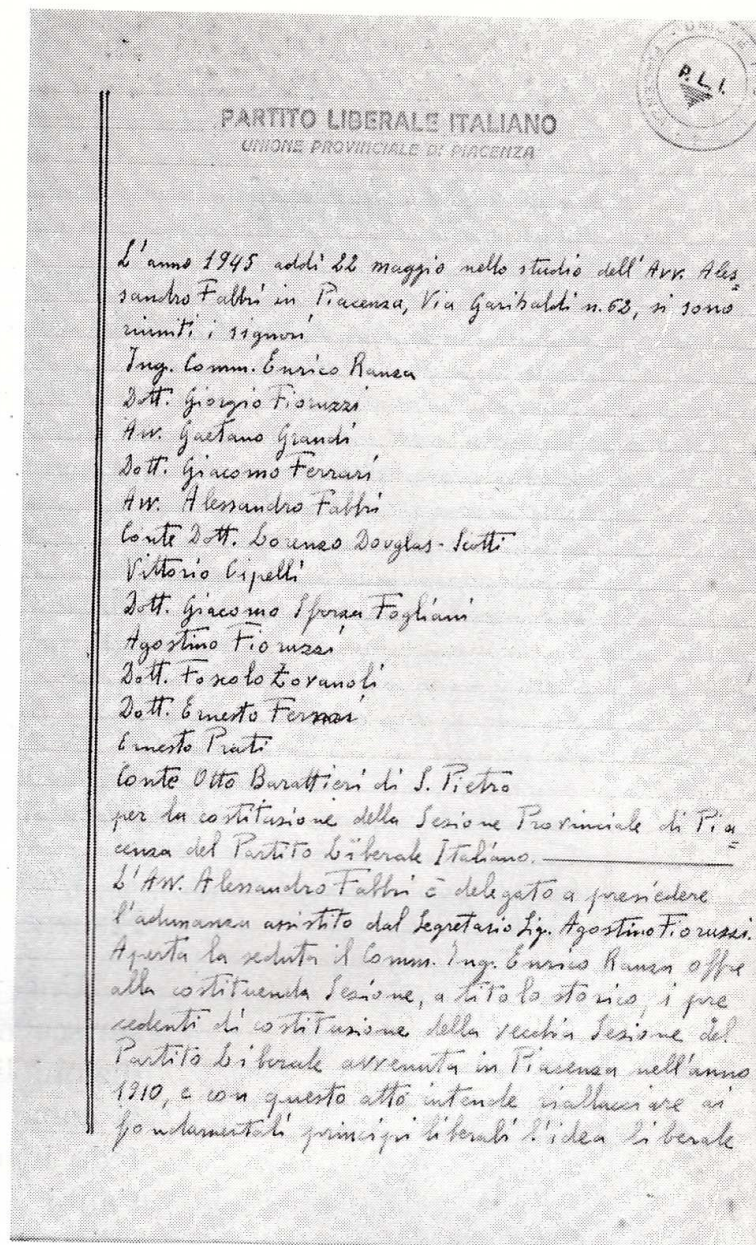 P.L.I.
PARTITO LIBERALE ITALIANO
UNIONE PROVINCIALE DI PIACENZA
L'anno 1945 addì 22 maggio nello studio dell'Avv. Ales=
sandro Fabbri in Piacenza, Via Garibaldi n. 62, si sono
riuniti i signori
Ing. Comm. Enrico Ranza
Dott. Giorgio Fioruzzi
Avv. Gaetano Grandi
Dott. Giacomo Ferrari
Avv. Alessandro Fabbri
Conte Dott. Lorenzo Douglas-Scotti
Vittorio Cipelli
Dott. Giacomo Sforza Fogliani
Agostino Fioruzzi
Dott. Foscolo Zovanoli
Dott. Ernesto Ferrari
Ernesto Prati
Conte Otto Barattieri di S. Pietro
per la costituzione della Sezione Provinciale di Pia=
cenza del Partito Liberale Italiano.
L'Avv. Alessandro Fabbri è delegato a presiedere
l'adunanza assistito dal Segretario Sig. Agostino Fioruzzi.
Aperta la seduta il Comm. Ing. Enrico Ranza offre
alla costituenda Sezione, a titolo storico, i pre
cedenti di costituzione della vecchia Sezione del
Partito Liberale avvenuta in Piacenza nell'anno
1910, e con questo atto intende riallacciare ai
fondamentali principi liberali l'idea liberale